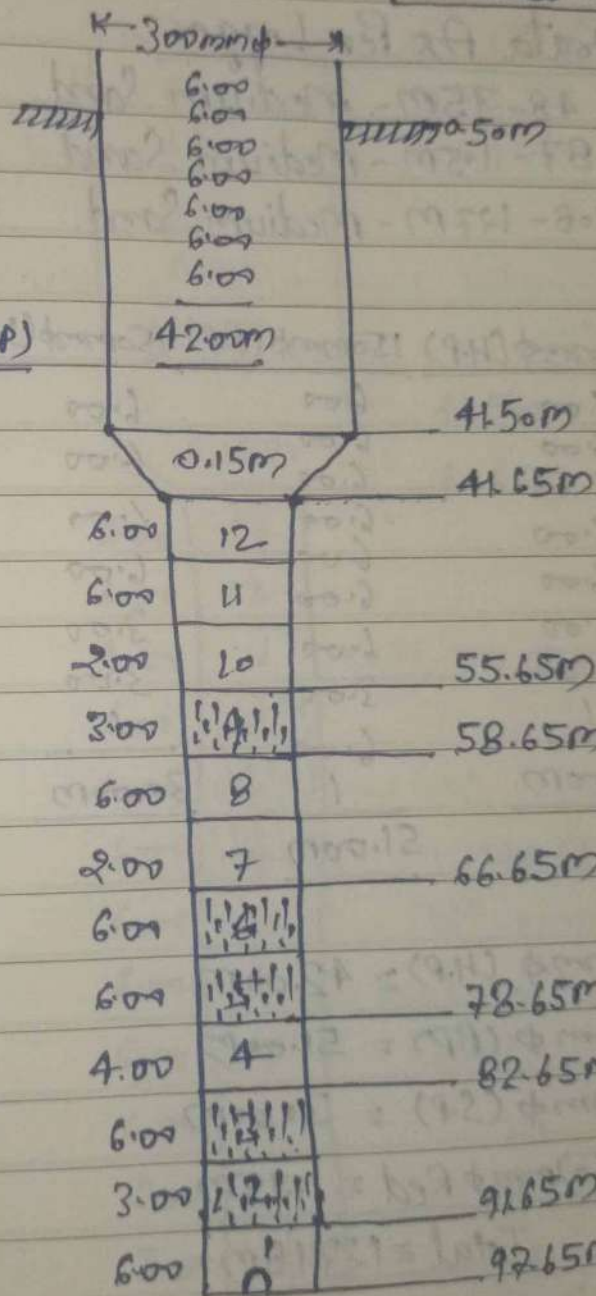 300mmφ
6.00
6.00
0.50m
6.00
6.00
6.00
6.00
6.00
P) 42.00m
41.50m
0.15m
41.65m
6.00 12
6.00 11
2.00 10 55.65m
3.00 9 58.65m
6.00 8
2.00 7 66.65m
6.00 6
6.00 5 78.65m
4.00 4 82.65m
6.00 3
3.00 2 91.65m
6.00 1 97.65m